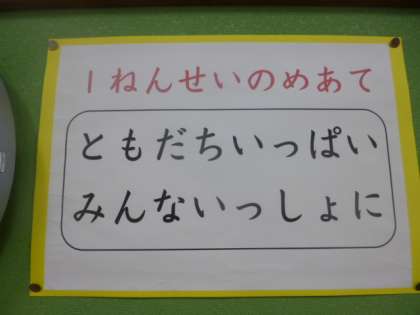 1ねんせいのめあて
ともだちいっぱい
みんないっしょに